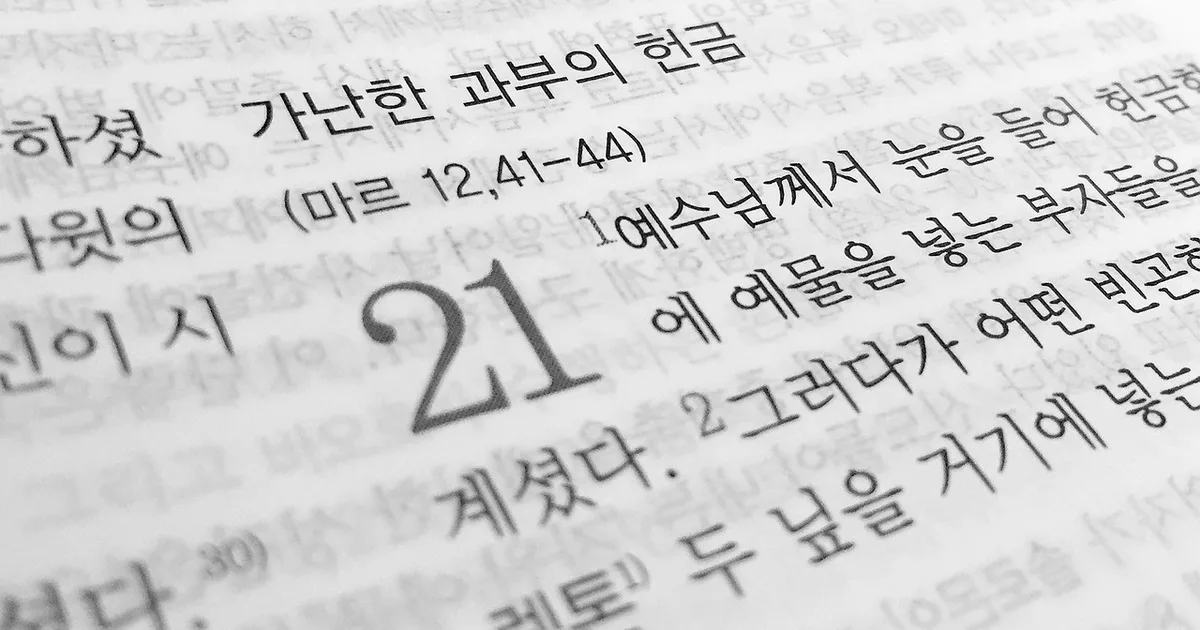 하셨
다윗의
신이 시
셨다.30)
가난한 과부의 헌금
(마르 12,41-44)
21
1예수님께서 눈을 들어
에 예물을 넣는 부자들을
계셨다. 2그러다가 어떤
렙토1) 두 닢을 거기에 넣는